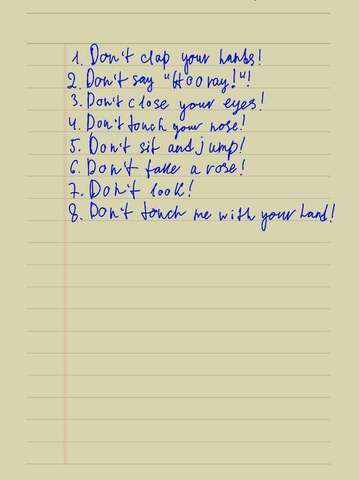 1. Don't clap your hands!
2. Don't say "Hooray!"!
3. Don't close your eyes!
4. Don't touch your nose!
5. Don't sit and jump!
6. Don't take a rose!
7. Don't look!
8. Don't touch me with your hand!